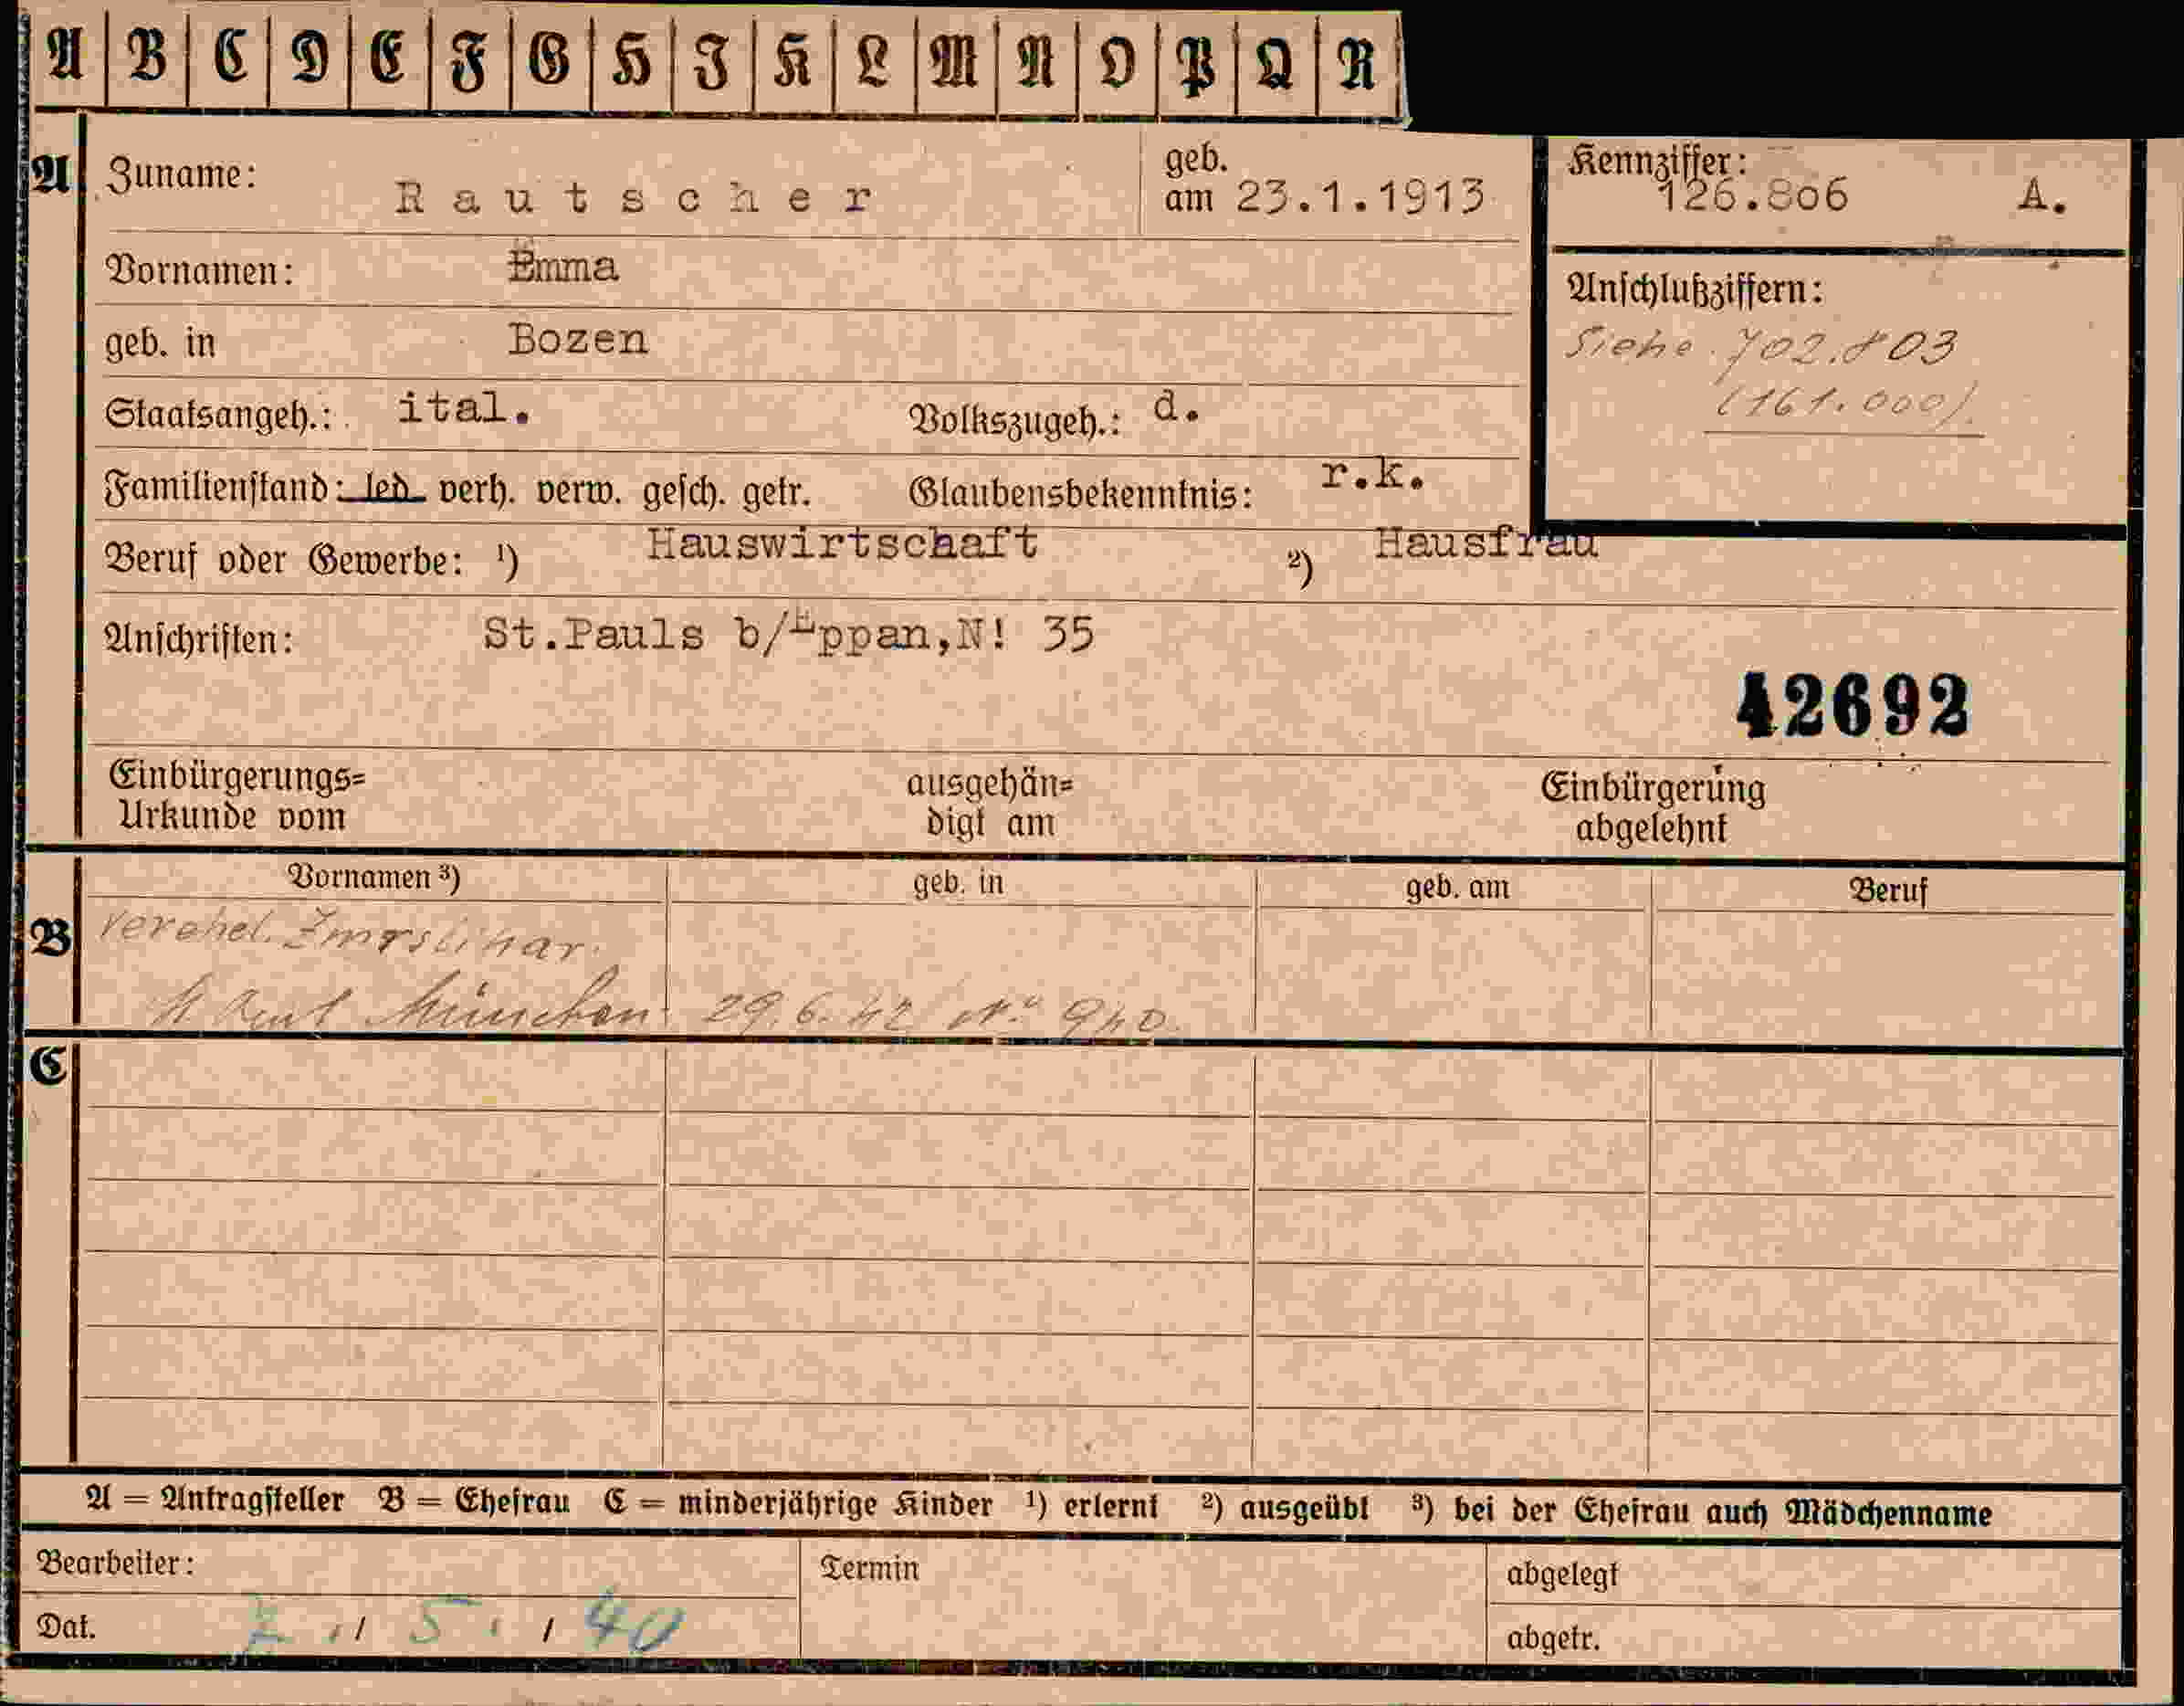 A B C D E F G H I K L M N O P Q R
A Zuname: Rautscher geb. am 23.1.1913 Kennziffer: 126.806 A.
Vornamen: Emma
Anschlußziffern:
geb. in Bozen
Siehe 702.803
Staatsangeh.: ital. Volkszugeh.: d.
(161.000).
Familienstand: led verh. verw. gesch. getr. Glaubensbekenntnis: r.k.
Beruf oder Gewerbe: ¹) Hauswirtschaft ²) Hausfrau
Anschriften: St.Pauls b/Eppan,N! 35
42692
Einbürgerungs= ausgehän= Einbürgerung
Urkunde vom digt am abgelehnt
Vornamen ³) geb. in geb. am Beruf
B verehel.
München 29.6.42 No 940.
C
A = Antragsteller B = Ehefrau C = minderjährige Kinder ¹) erlernt ²) ausgeübt ³) bei der Ehefrau auch Mädchenname
Bearbeiter: Termin abgelegt
Dat. / 5. / 40 abgetr.